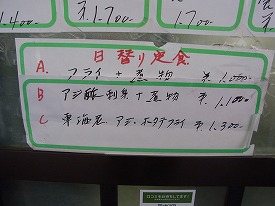 1.400
¥.1.700-
1.700
日替り定食
A. フライ+煮物 ¥.1.000-
B アジ酢・刺身+煮物 ¥.1.100-
C 東海老、アジ、ホタテフライ ¥.1.300-